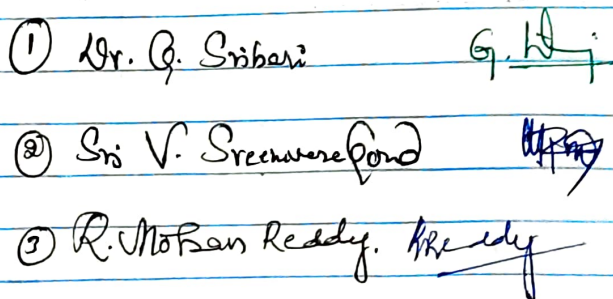 ① Dr. G. Srihari G.
② Sri V. Sreenivasa Goud
③ R. Mohan Reddy. RReddy